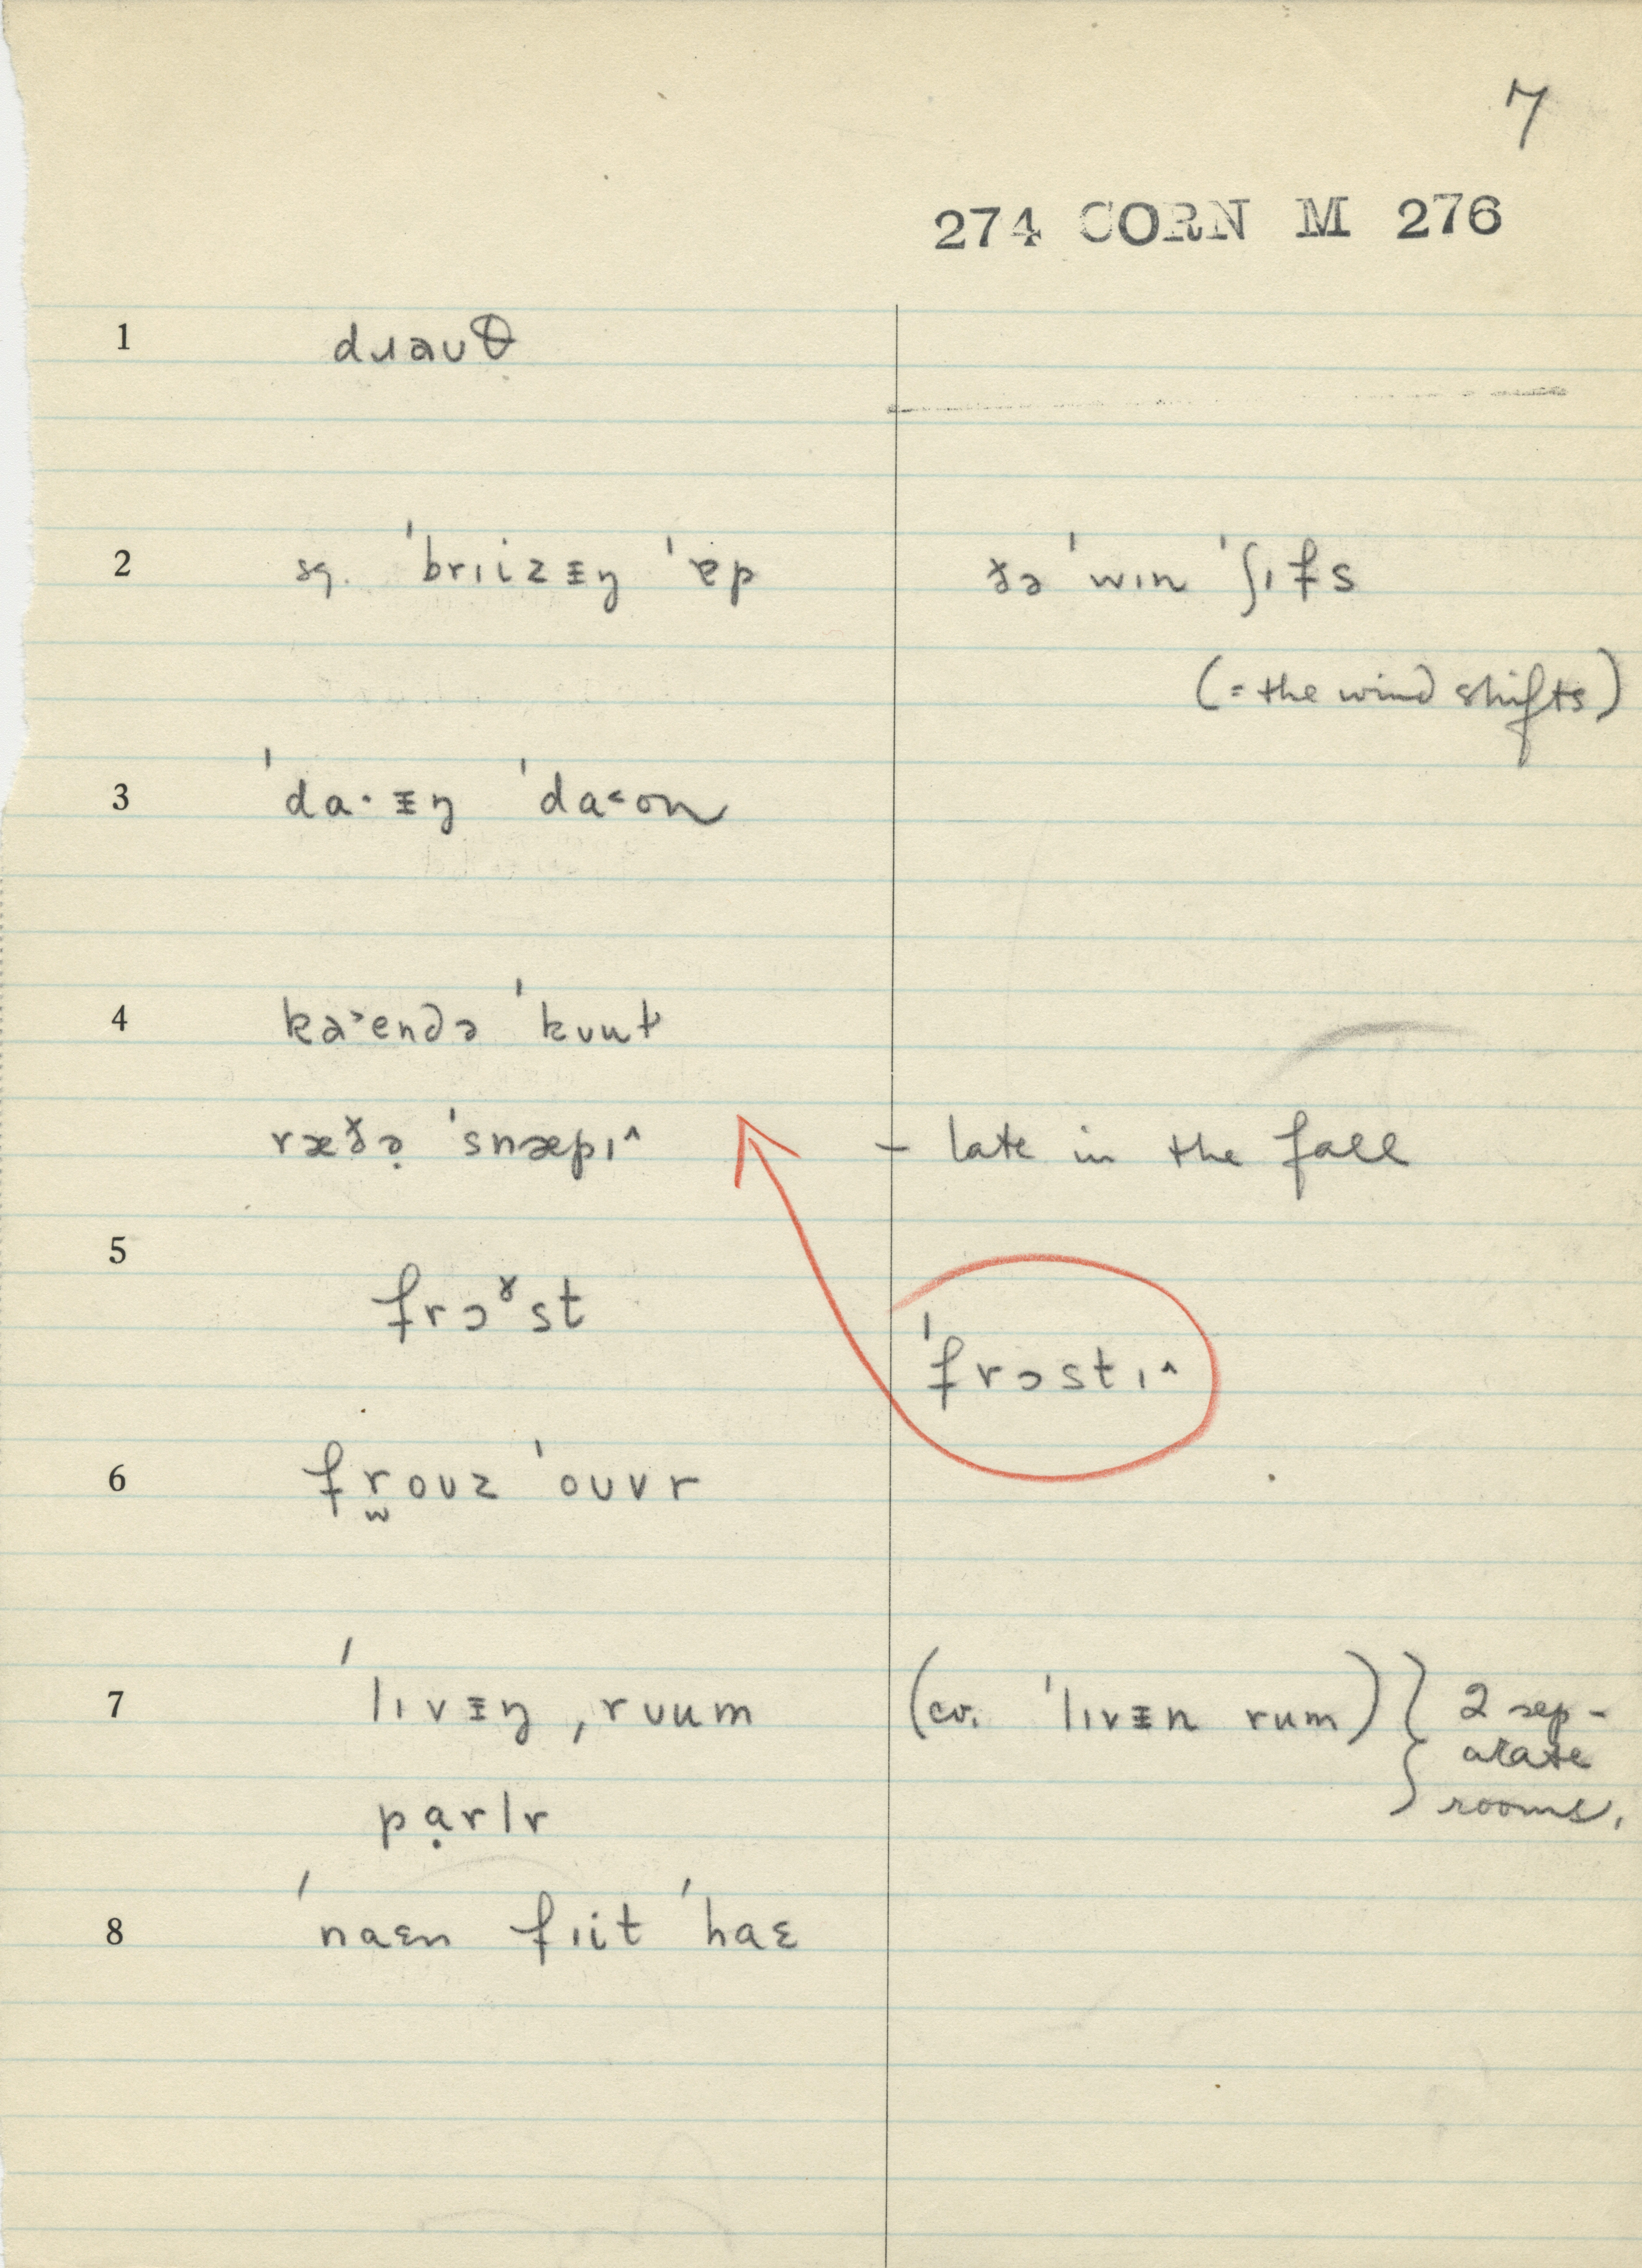 7
274 CORN M 276
1 dɹaʊθ
2 sq. ˈbrɪizᵻŋ ˈɐp ðə ˈwɪn ˈʃɪfs
(= the wind shifts)
3 ˈda·ᵻŋ ˈda˂on
4 ˈkuut
ræðə̣ ˈsnæpɪ^ – late in the fall
5 frɔˠst
ˈfrɔstɪ^
6 fr̫oʊz ˈoʊvr
7 ˈlɪvᵻŋ ˌrʊum (cv. ˈlɪvᵻn rum) } 2 sep-
arate
pạrlr rooms.
8 ˈnaɛn fɪit ˈhaɛ